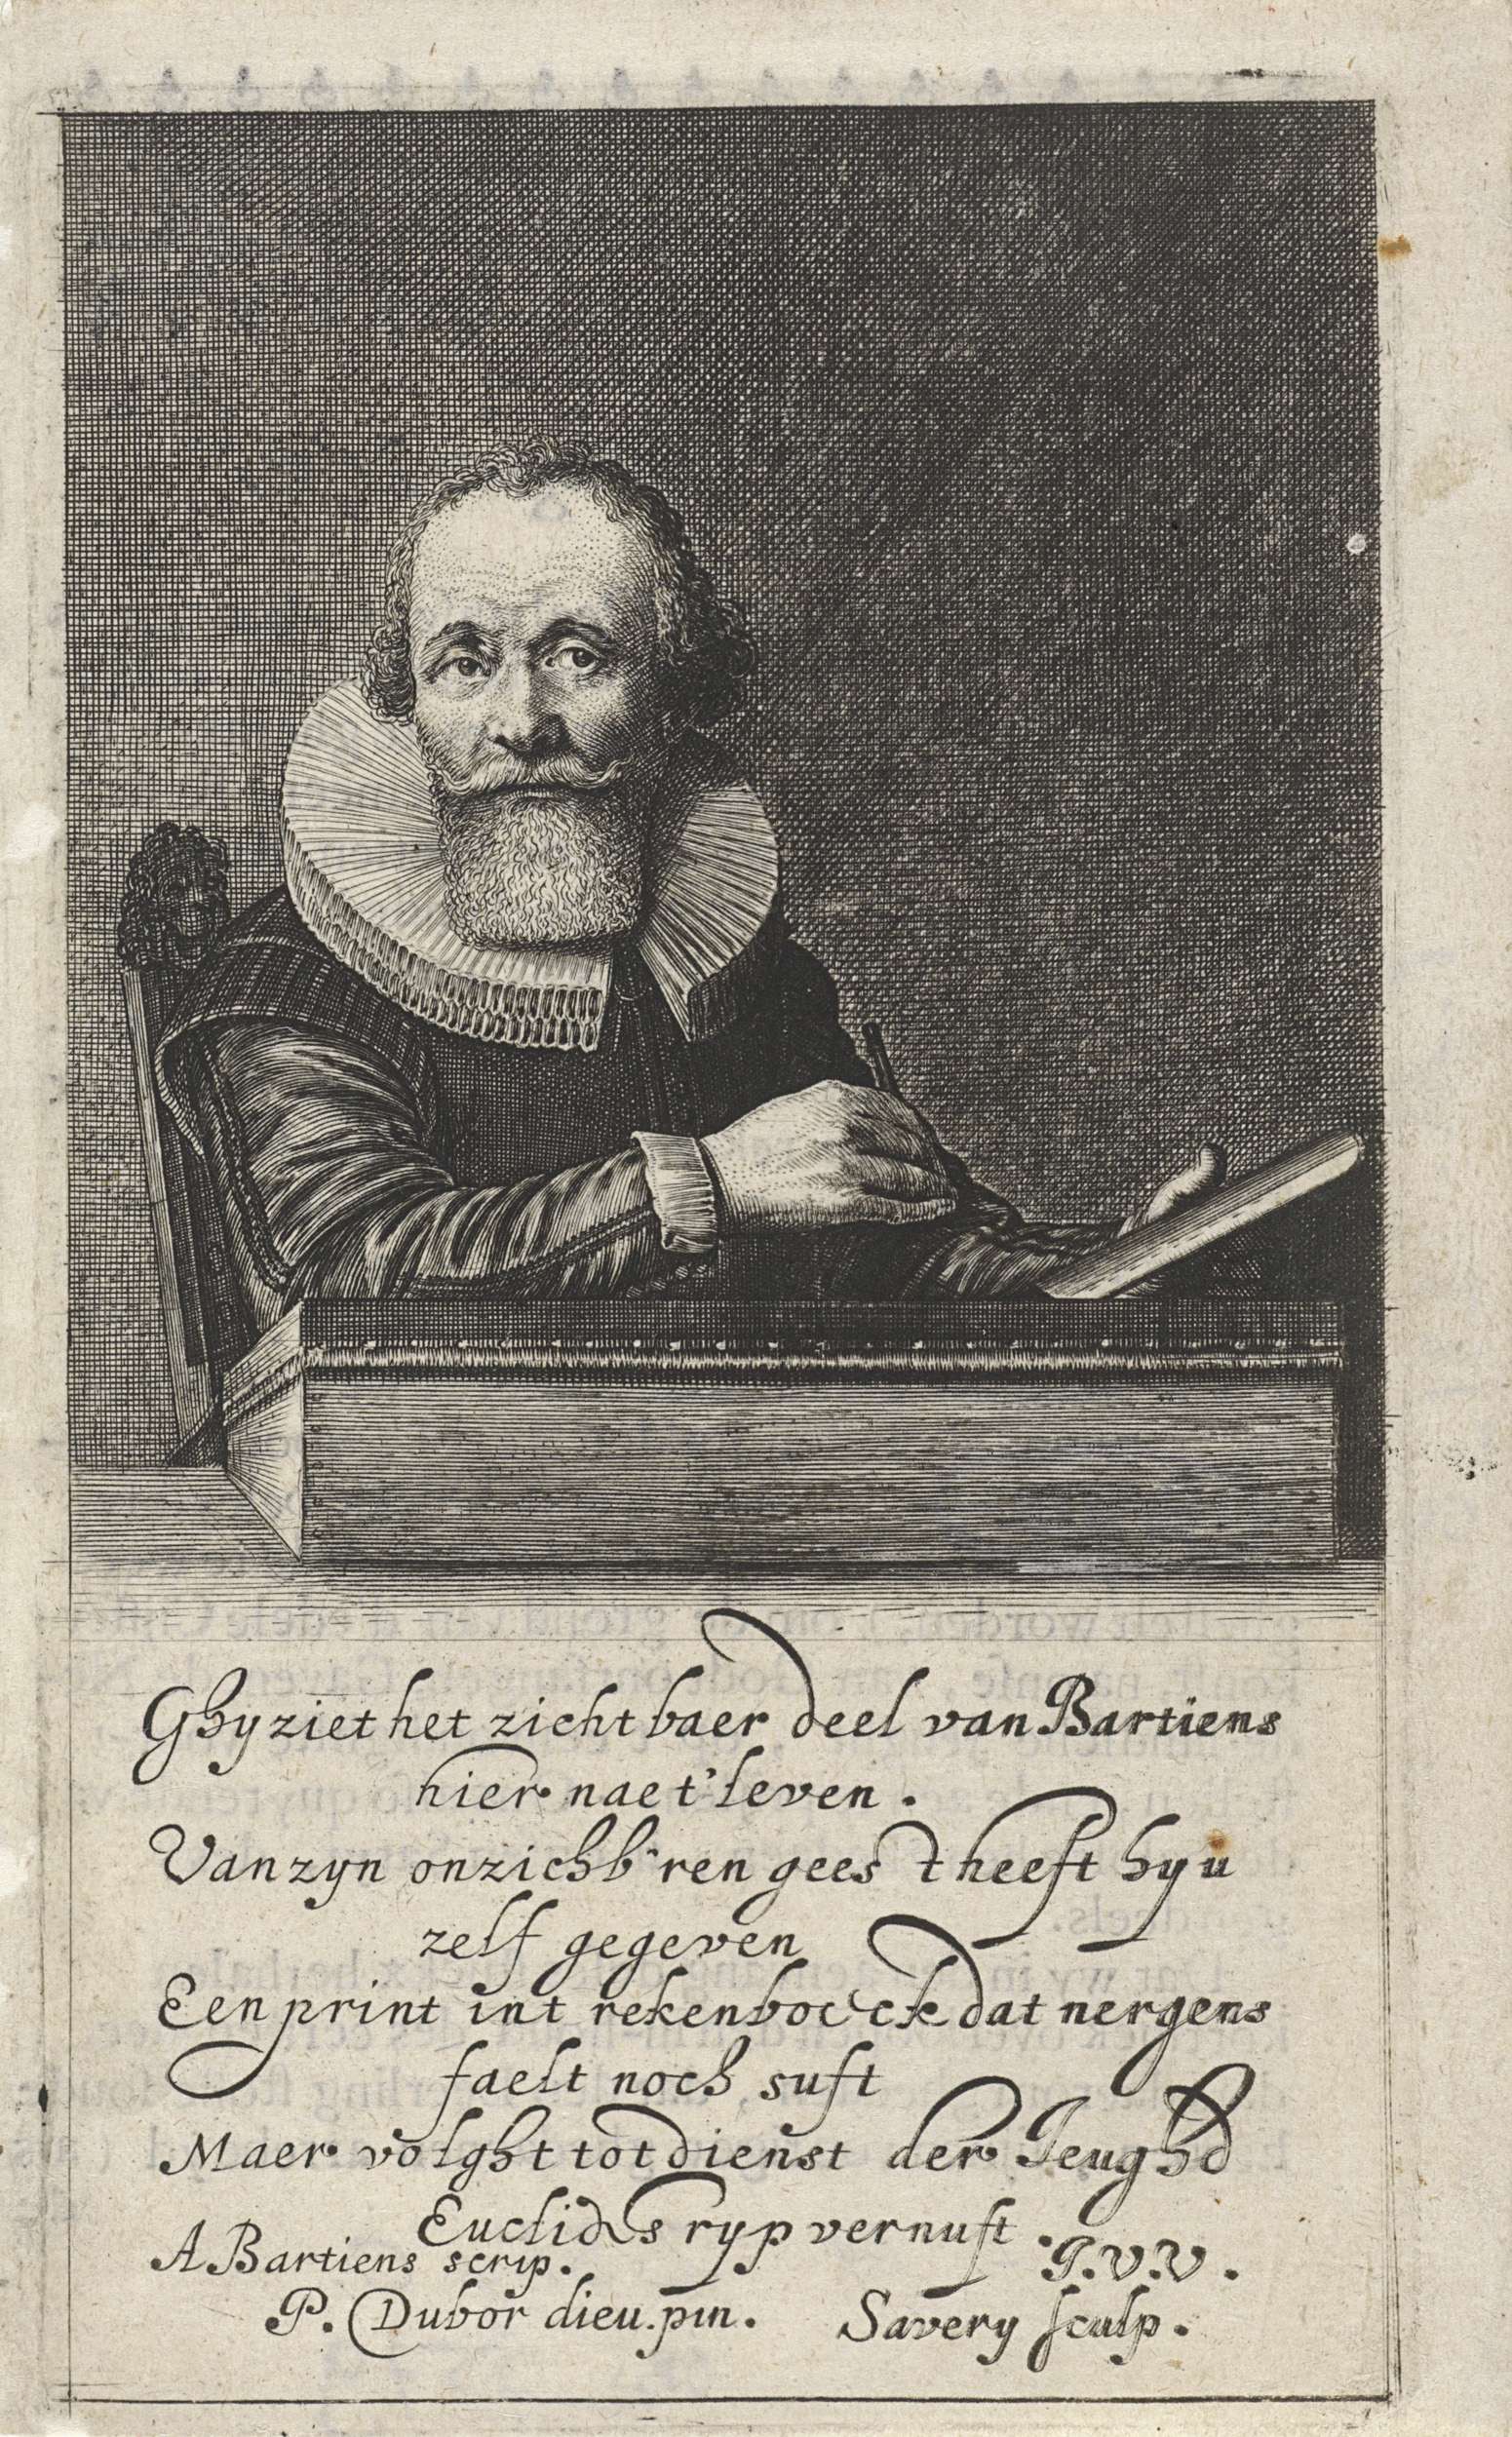 Ghy ziet het zichtbaer deel van Bartiens
hier nae t'leven.
Van zyn onzichb'ren geest heeft hy u
zelf gegeven
Een print int rekenboeck dat nergens
faelt noch suft
Maer volght tot dienst der Ieughd
Euclides ryp vernuft
I.V.V.
A Bartiens scrip.
P. Dubordieu. pin. Savery sculp.